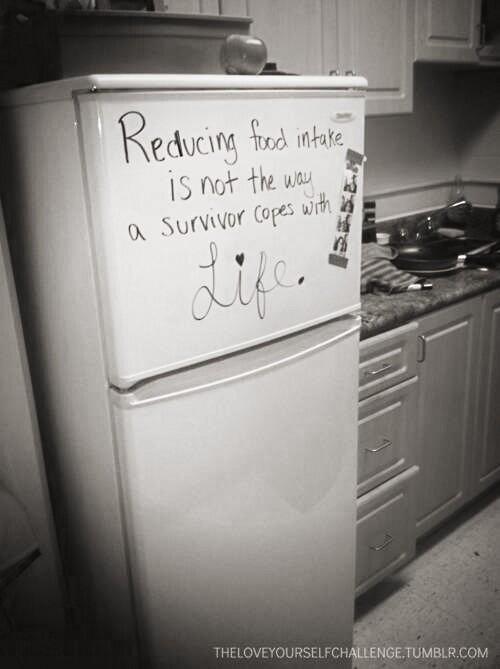 Reducing food intake
is not the way
a survivor copes with
Life.
THELOVEYOURSELFCHALLENGE.TUMBLR.COM